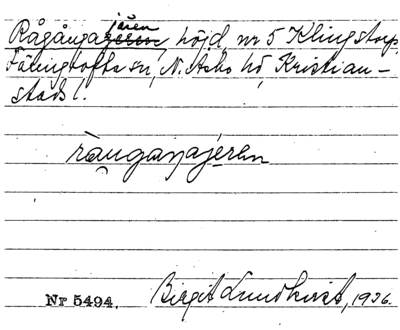 Rågångajären, höjd, nr 5 Klingstorp,
Färingtofta sn, N. Åsbo hd, Kristian-
stads l.
rångaŋajæren
Nr 5494. Birgit Lundkvist, 1936.